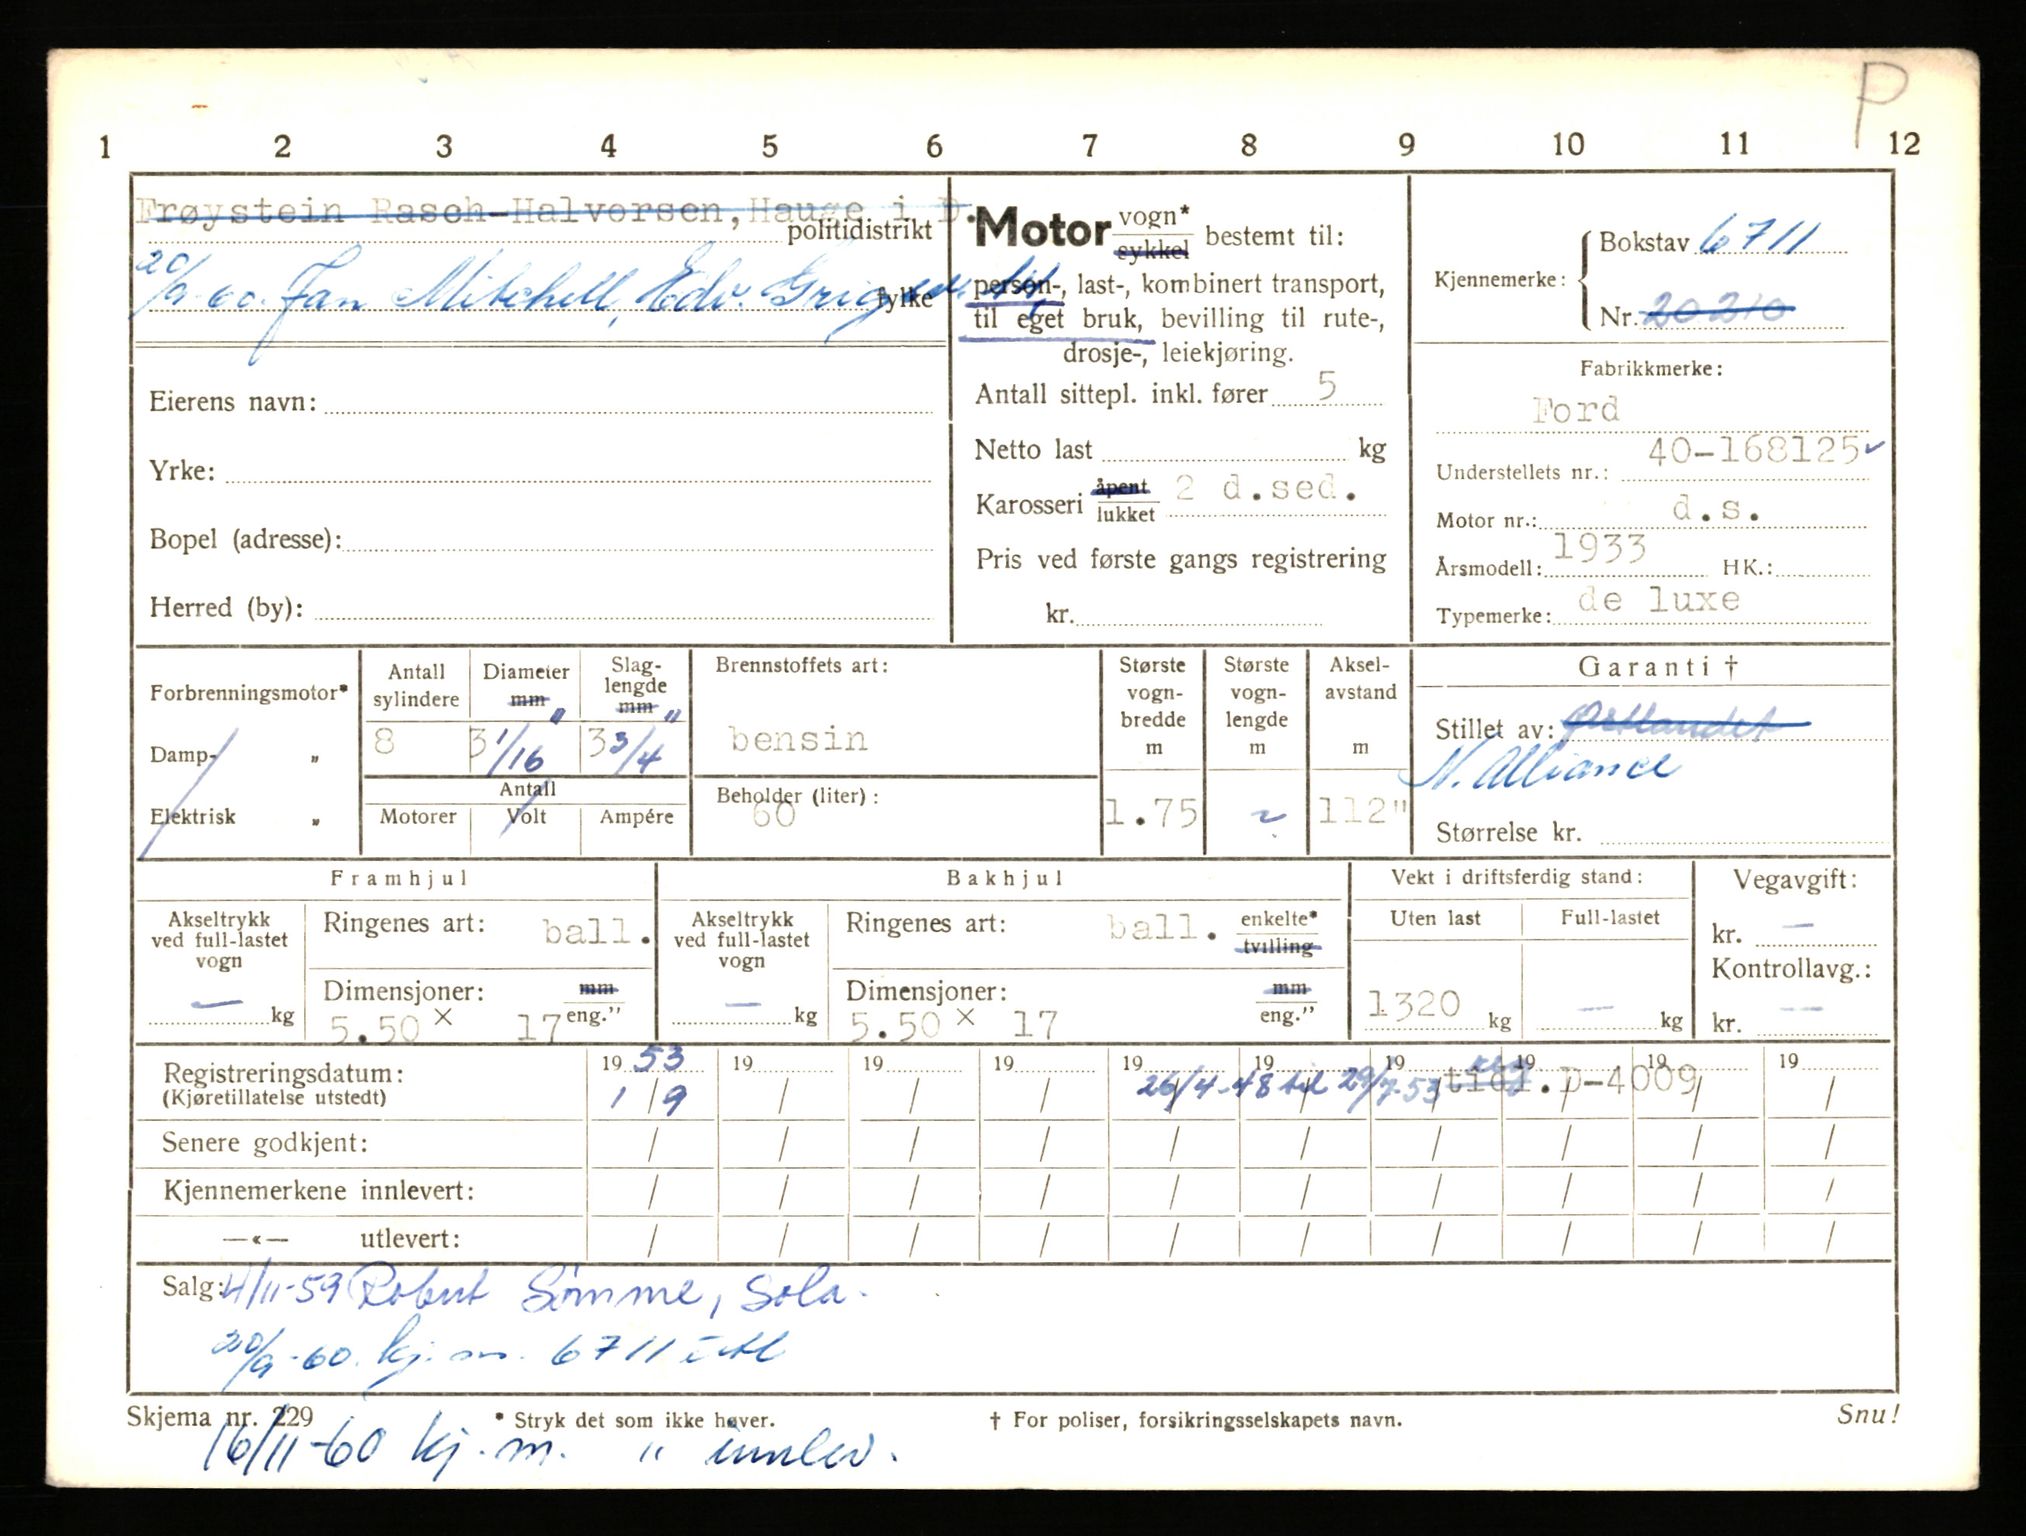 P
1 2 3 4 5 6 7 8 9 10 11 12
Frøystein Rasch-Halvorsen, Hauge i D.
politidistrikt
20/9-60. Jan Mitchell, Edv. Griegsv.
fylke
Eierens navn:
Yrke:
Bopel (adresse):
Herred (by):
Motor vogn* sykkel bestemt til:
person-, last-, kombinert transport,
til eget bruk, bevilling til rute-,
drosje-, leiekjøring.
Antall sittepl. inkl. fører 5
Netto last kg
Karosseri åpent lukket 2 d.sed.
Pris ved første gangs registrering
kr.
Kjennemerke: Bokstav 6711
Nr. 20210
Fabrikkmerke:
Ford
Understellets nr.: 40-168125
Motor nr.: d.s.
Årsmodell: 1933 HK.:
Typemerke: de luxe
Forbrenningsmotor*
Damp- „
Elektrisk „
Antall sylindere 8
Diameter mm " 3 1/16
Slaglengde mm " 3 3/4
Antall
Motorer Volt Ampére
Brennstoffets art:
bensin
Beholder (liter):
60
Største vogn-bredde m 1.75
Største vogn-lengde m
Aksel-avstand m 112"
Garanti †
Stillet av: Østlandet
N. Alliance
Størrelse kr.
Framhjul
Akseltrykk ved full-lastet vogn — kg
Ringenes art: ball.
Dimensjoner: mm eng."
5.50 × 17
Bakhjul
Akseltrykk ved full-lastet vogn — kg
Ringenes art: ball. enkelte* tvilling
Dimensjoner: mm eng."
5.50 × 17
Vekt i driftsferdig stand:
Uten last Full-lastet
1320 kg — kg
Vegavgift:
kr. —
Kontrollavg.:
kr. —
Registreringsdatum: 19 53 19 19 19 19 19 19 19 19 19
(Kjøretillatelse utstedt) 1/9 / / / 26/4-48 til 29/7-53 reg. tidl. D-4009
Senere godkjent: / / / / / / / / / /
Kjennemerkene innlevert: / / / / / / / / / /
—«— utlevert: / / / / / / / / / /
Salg: 4/11-59 Robert Sømme, Sola.
20/9-60. kj.m. 6711 utl
Skjema nr. 229 * Stryk det som ikke høver. † For poliser, forsikringsselskapets navn. Snu!
16/11-60 kj.m. " innlev.